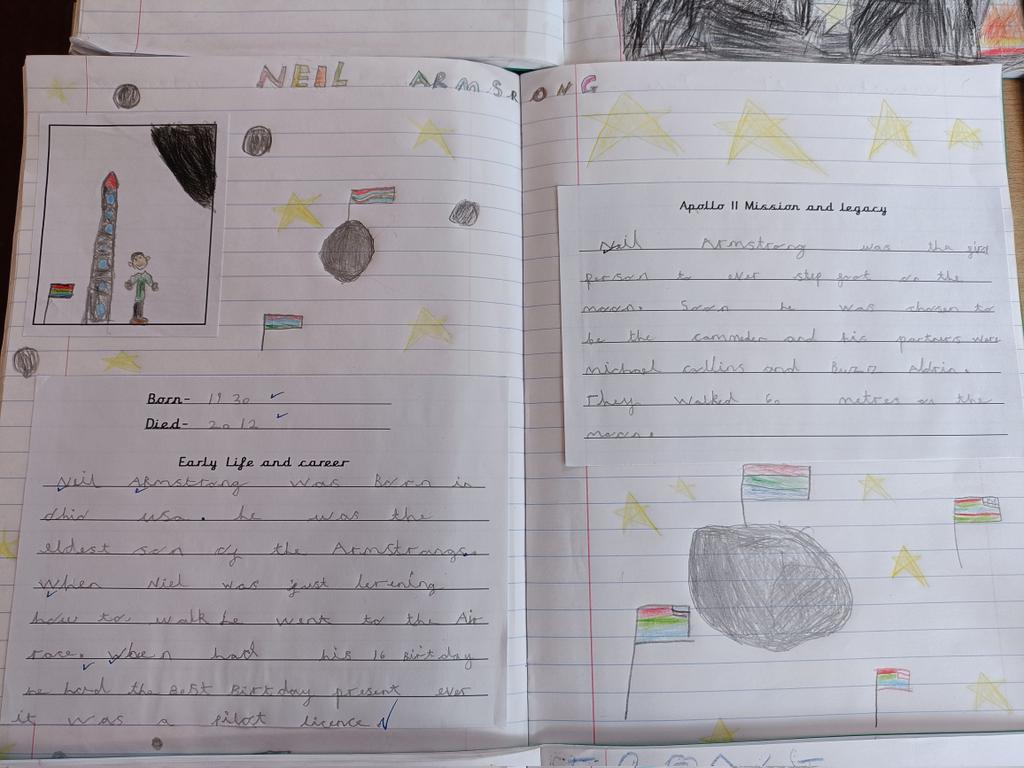 NEIL ARMSRONG
Born- 1930
Died- 2012
Early Life and career
Neil ARmstrong was Born in
ohio usa. he was the
eldest son of the Armstrongs.
When Niel was just lerening
how to walk he went to the Air
race. when had his 16 Birtday
he had the BeSt Birtday present ever
it was a pilot licence
Apollo 11 Mission and legacy
Neil Armstrong was the first
person to ever step foot on the
moon. Soon he was chosen to
be the commeder and his partners were
michael collins and Buzz Aldrin.
They walked 60 metres on the
moon.